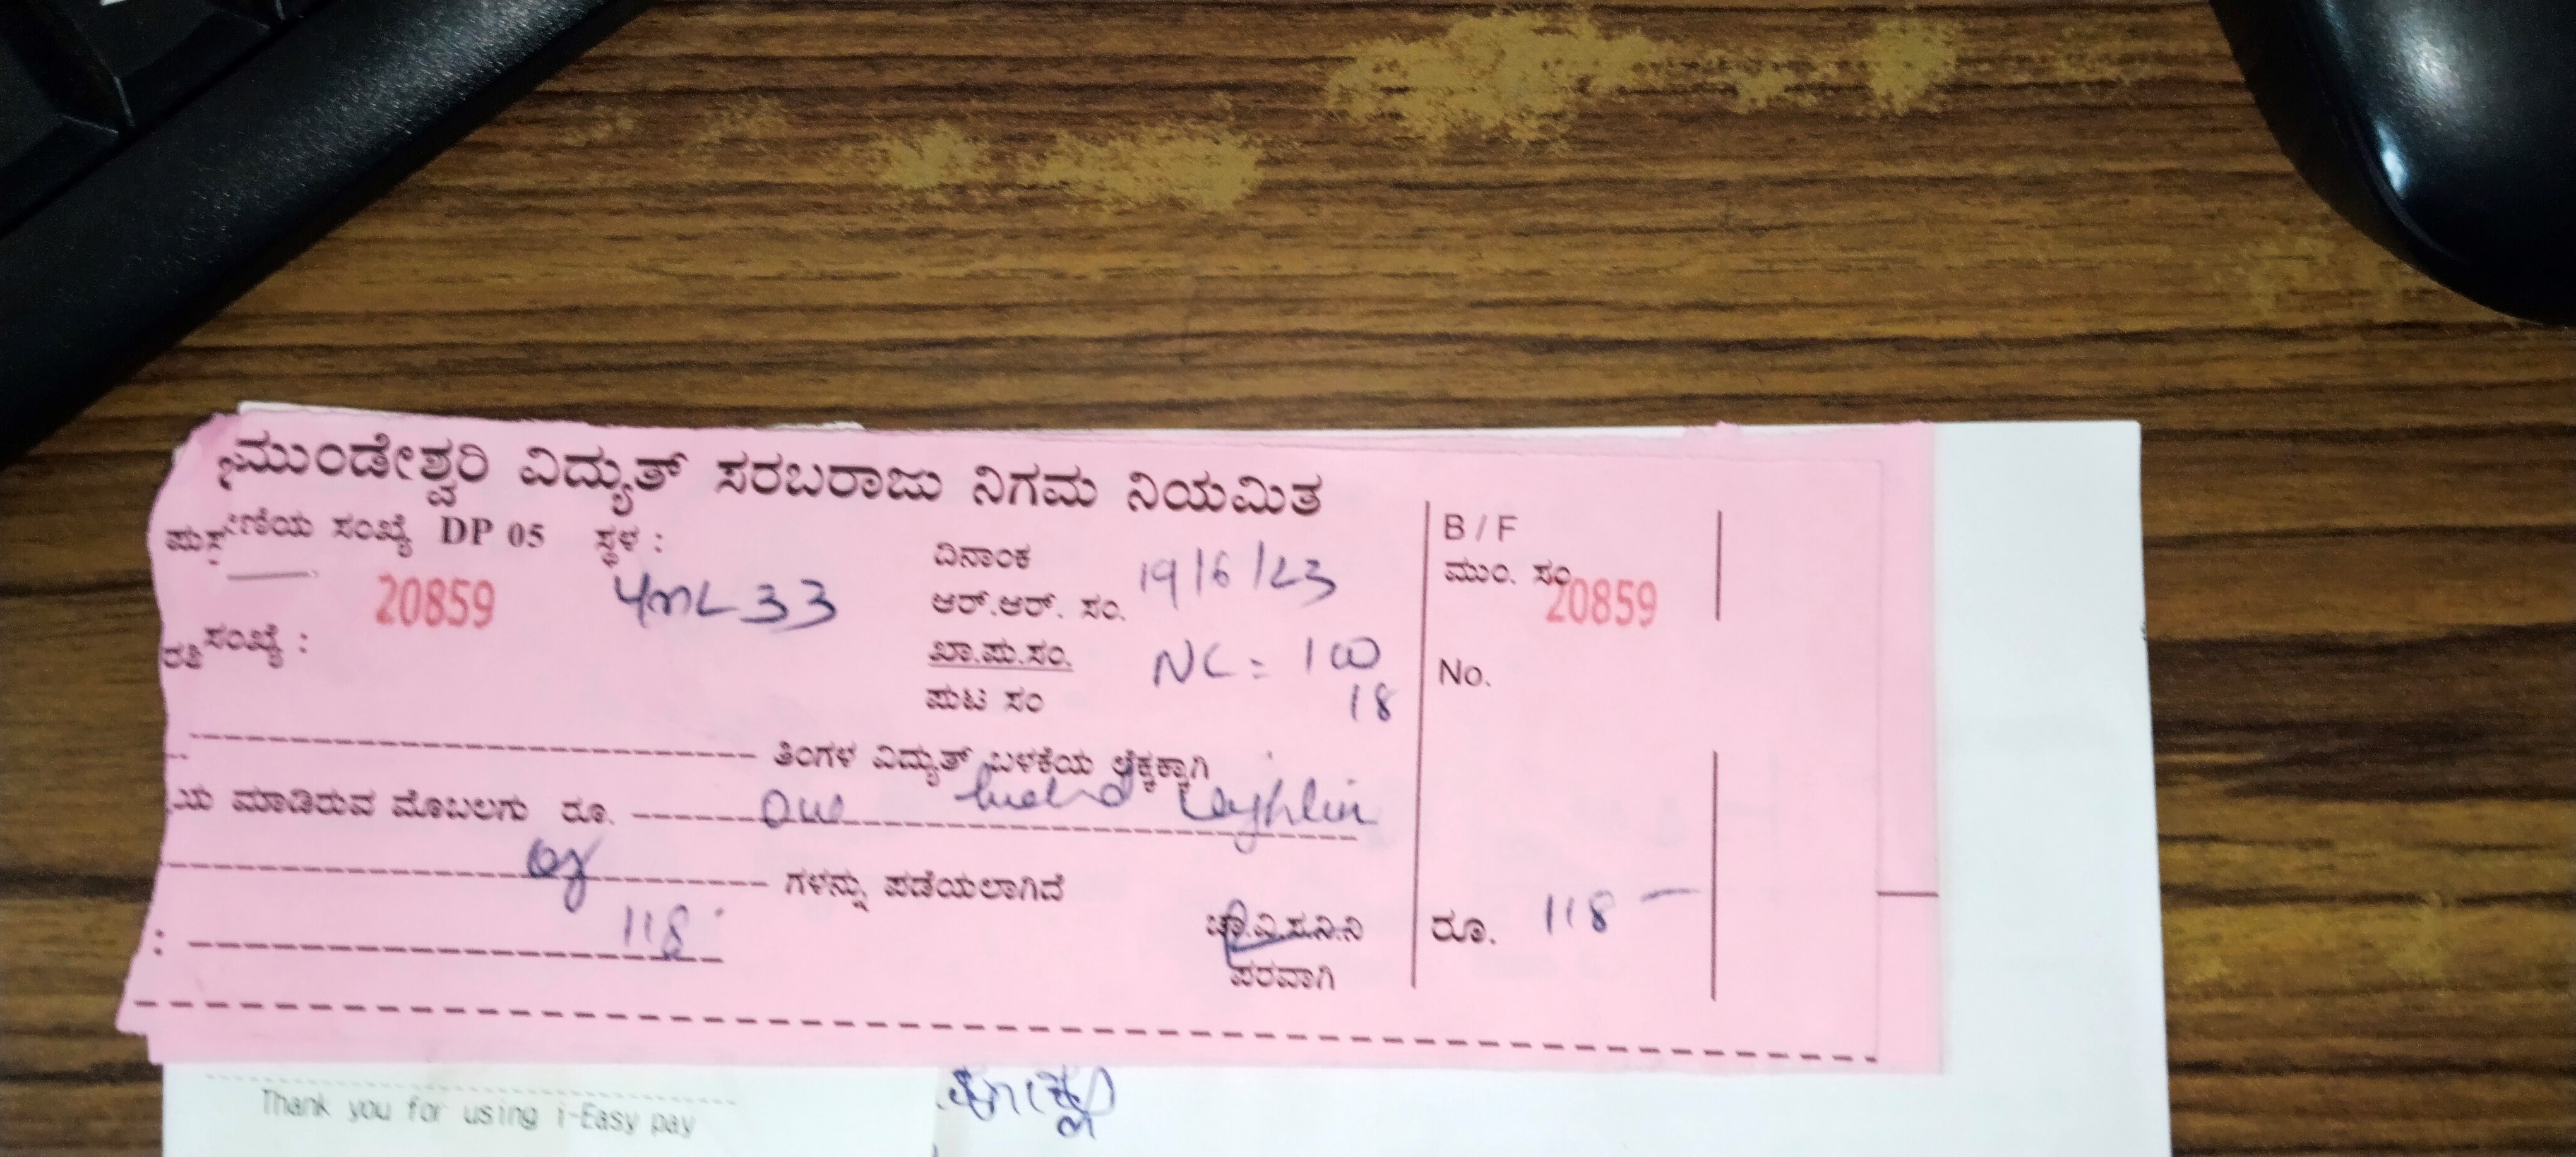 ಮುಂಡೇಶ್ವರಿ ವಿದ್ಯುತ್ ಸರಬರಾಜು ನಿಗಮ ನಿಯಮಿತ
ಸಂಖ್ಯೆ DP 05 ಸ್ಥಳ :
ದಿನಾಂಕ 19/6/23
20859 4ML33
ಆರ್.ಆರ್. ಸಂ.
ಸಂಖ್ಯೆ :
ಖಾ.ಪು.ಸಂ. NC = 100
ಪುಟ ಸಂ 18
ತಿಂಗಳ ವಿದ್ಯುತ್ ಬಳಕೆಯ ಲೆಕ್ಕಕ್ಕಾಗಿ
ಯ ಮಾಡಿರುವ ಮೊಬಲಗು ರೂ. One
ಗಳನ್ನು ಪಡೆಯಲಾಗಿದೆ
: 118
ಚಾ.ವಿ.ಸ.ನಿ.ನಿ
ಪರವಾಗಿ
B / F
ಮುಂ. ಸಂ. 20859
No.
ರೂ. 118 —
Thank you for using i-Easy pay